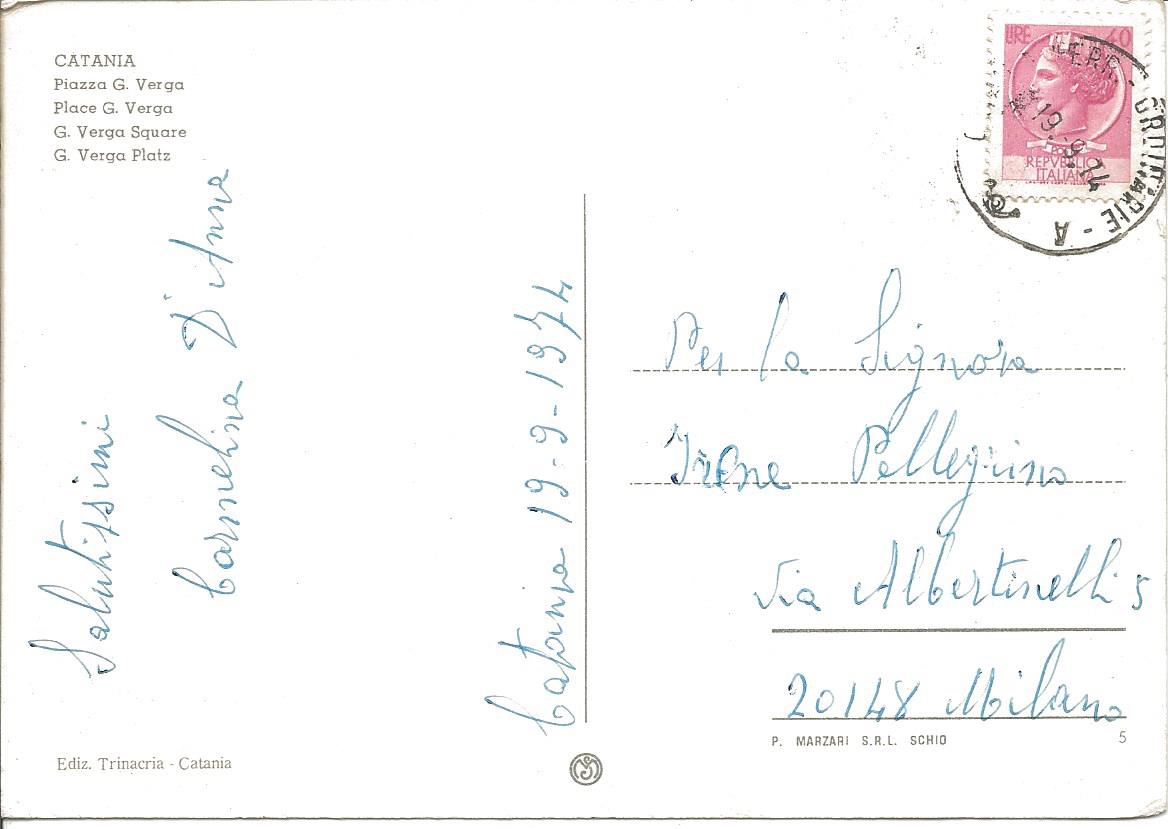 CATANIA
Piazza G. Verga
Place G. Verga
G. Verga Square
G. Verga Platz
Salutissimi
Carmelina D'Anna
Catania 19-9-1974
LIRE 40
POSTE
REPVBBLICA
ITALIANA
FERR. - ORDINARIE - A
19.-9.74
Per la Signora
Irene Pellegrino
Via Albertinelli 5
20148 Milano
P. MARZARI S.R.L. SCHIO
5
Ediz. Trinacria - Catania